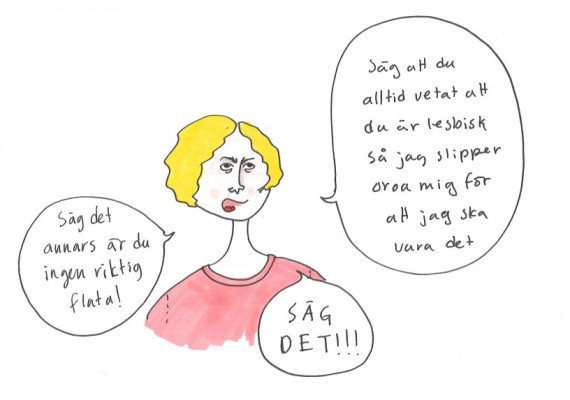 Säg att du
alltid vetat att
du är lesbisk
så jag slipper
oroa mig för
att jag ska
vara det
Säg det
annars är du
ingen riktig
flata!
SÄG
DET!!!